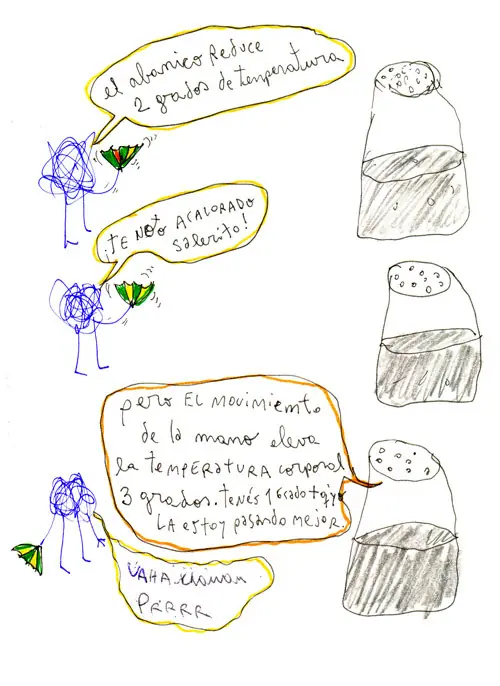 el abanico Reduce
2 grados de temperatura
¡TE NOTO ACALORADO
salerito!
pero EL MOVIMIEMTO
de la mano eleva
la TEMPERATURA corporal
3 grados. tenés 1 GRado + q' yo
LA estoy pasando mejor.
PRRRR